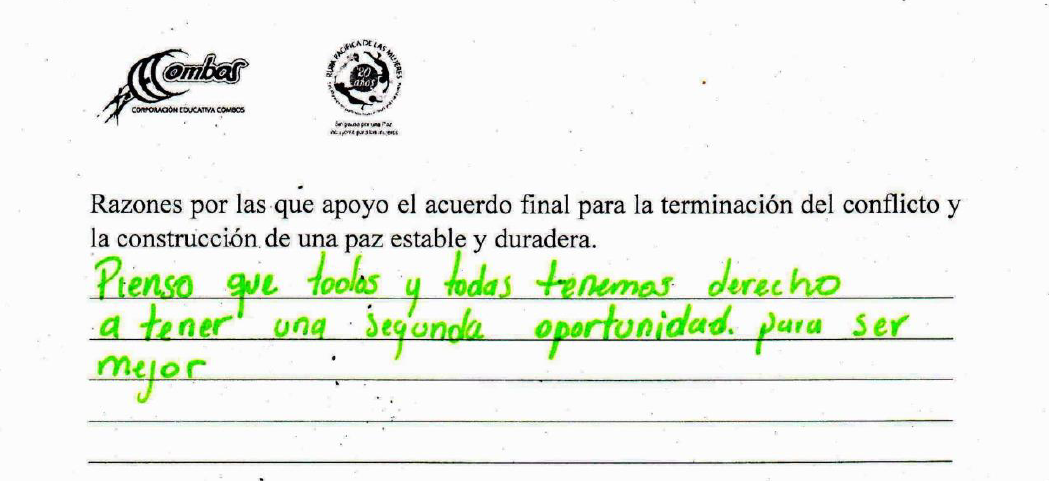 Combos
CORPORACIÓN EDUCATIVA COMBOS
RUTA PACÍFICA DE LAS MUJERES
20 años
Razones por las que apoyo el acuerdo final para la terminación del conflicto y
la construcción de una paz estable y duradera.
Pienso que todos y todas tenemos derecho
a tener una segunda oportunidad. para ser
mejor